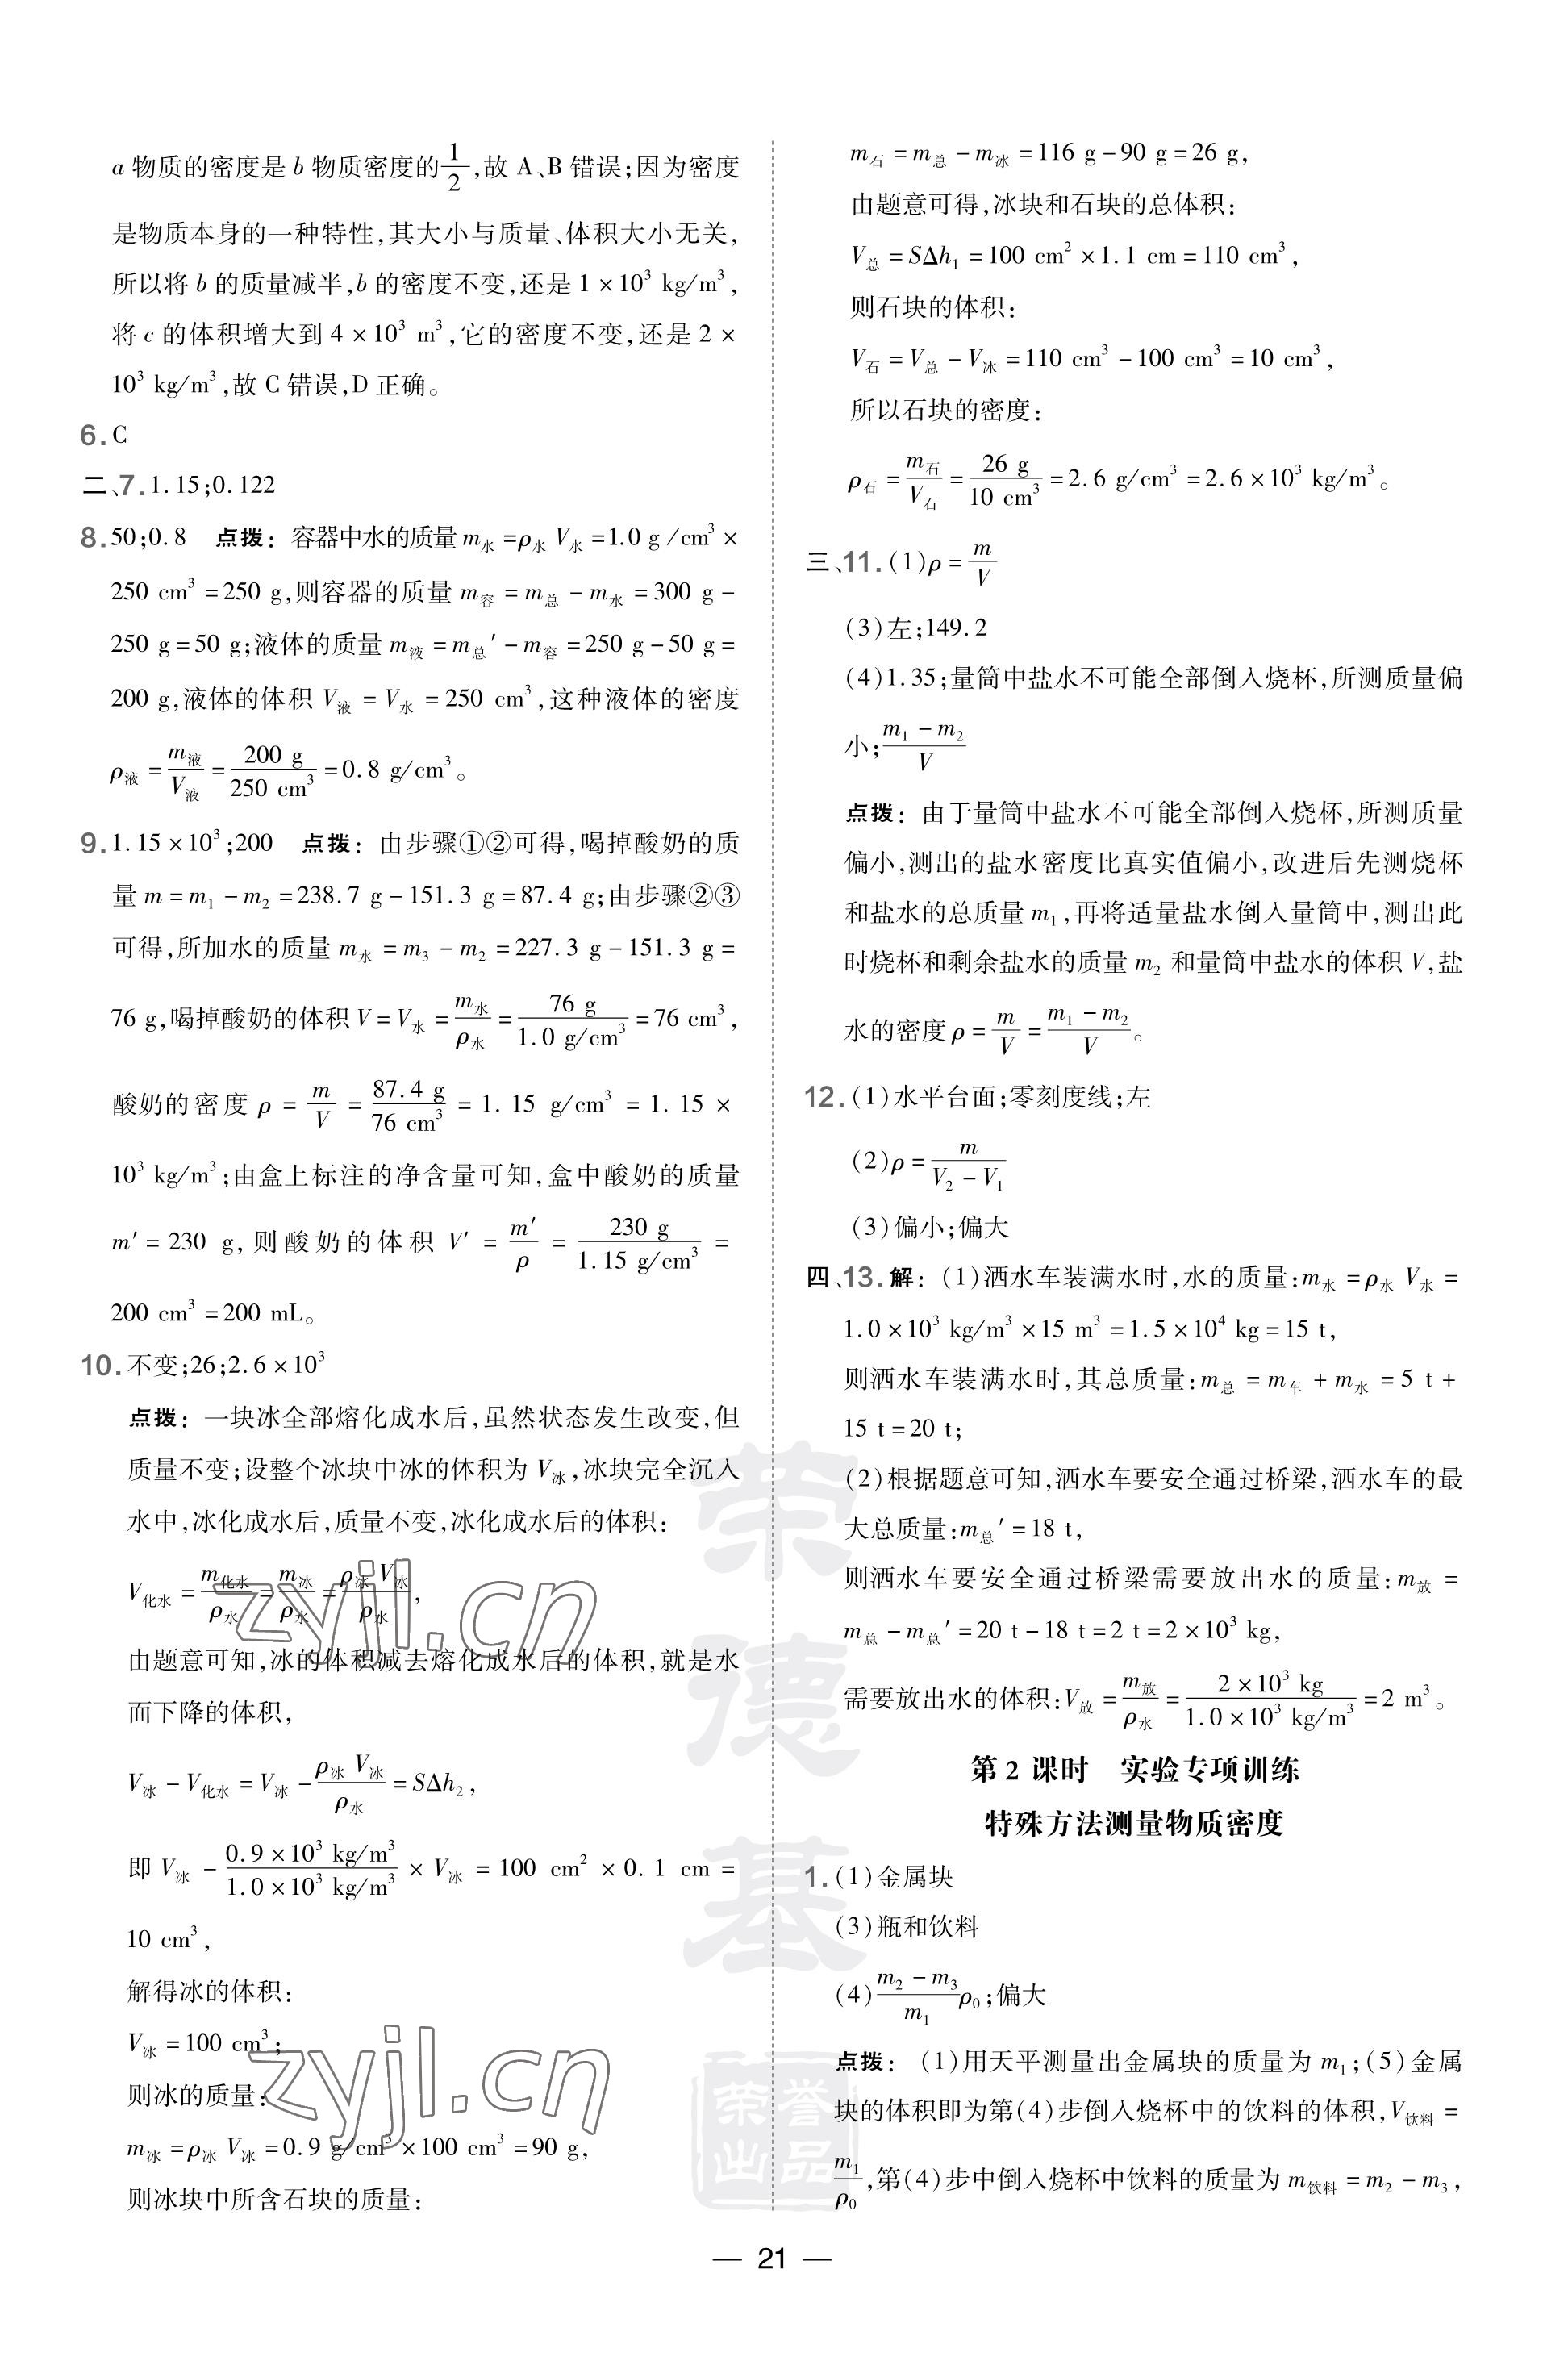 a 物质的密度是 b 物质密度的1/2,故 A、B 错误;因为密度
是物质本身的一种特性,其大小与质量、体积大小无关,
所以将 b 的质量减半,b 的密度不变,还是 1×10³ kg/m³,
将 c 的体积增大到 4×10³ m³,它的密度不变,还是 2×
10³ kg/m³,故 C 错误,D 正确。
6. C
二、7. 1.15;0.122
8. 50;0.8 点拨: 容器中水的质量 m水 =ρ水 V水 =1.0 g/cm³ ×
250 cm³ =250 g,则容器的质量 m容 =m总 -m水 =300 g-
250 g=50 g;液体的质量 m液 =m总′-m容 =250 g-50 g=
200 g,液体的体积 V液 =V水 =250 cm³,这种液体的密度
ρ液 =m液/V液=200 g/250 cm³=0.8 g/cm³。
9. 1.15×10³;200 点拨: 由步骤①②可得,喝掉酸奶的质
量 m=m₁-m₂=238.7 g-151.3 g=87.4 g;由步骤②③
可得,所加水的质量 m水 =m₃-m₂=227.3 g-151.3 g=
76 g,喝掉酸奶的体积 V=V水 =m水/ρ水=76 g/1.0 g/cm³=76 cm³,
酸奶的密度 ρ=m/V=87.4 g/76 cm³=1.15 g/cm³=1.15×
10³ kg/m³;由盒上标注的净含量可知,盒中酸奶的质量
m′=230 g,则酸奶的体积 V′=m′/ρ=230 g/1.15 g/cm³=
200 cm³=200 mL。
10. 不变;26;2.6×10³
点拨: 一块冰全部熔化成水后,虽然状态发生改变,但
质量不变;设整个冰块中冰的体积为 V冰,冰块完全沉入
水中,冰化成水后,质量不变,冰化成水后的体积:
V化水 =m化水/ρ水=m冰/ρ水=ρ冰 V冰/ρ水,
由题意可知,冰的体积减去熔化成水后的体积,就是水
面下降的体积,
V冰 -V化水 =V冰 -ρ冰 V冰/ρ水=SΔh₂,
即 V冰 -0.9×10³ kg/m³/1.0×10³ kg/m³×V冰 =100 cm²×0.1 cm=
10 cm³,
解得冰的体积:
V冰 =100 cm³;
则冰的质量:
m冰 =ρ冰 V冰 =0.9 g/cm³×100 cm³=90 g,
则冰块中所含石块的质量:
m石 =m总 -m冰 =116 g-90 g=26 g,
由题意可得,冰块和石块的总体积:
V总 =SΔh₁=100 cm²×1.1 cm=110 cm³,
则石块的体积:
V石 =V总 -V冰 =110 cm³-100 cm³=10 cm³,
所以石块的密度:
ρ石 =m石/V石=26 g/10 cm³=2.6 g/cm³=2.6×10³ kg/m³。
三、11. (1)ρ=m/V
(3)左;149.2
(4)1.35;量筒中盐水不可能全部倒入烧杯,所测质量偏
小;m₁-m₂/V
点拨: 由于量筒中盐水不可能全部倒入烧杯,所测质量
偏小,测出的盐水密度比真实值偏小,改进后先测烧杯
和盐水的总质量 m₁,再将适量盐水倒入量筒中,测出此
时烧杯和剩余盐水的质量 m₂ 和量筒中盐水的体积 V,盐
水的密度 ρ=m/V=m₁-m₂/V。
12. (1)水平台面;零刻度线;左
(2)ρ=m/V₂-V₁
(3)偏小;偏大
四、13. 解: (1)洒水车装满水时,水的质量:m水 =ρ水 V水 =
1.0×10³ kg/m³×15 m³=1.5×10⁴ kg=15 t,
则洒水车装满水时,其总质量:m总 =m车 +m水 =5 t+
15 t=20 t;
(2)根据题意可知,洒水车要安全通过桥梁,洒水车的最
大总质量:m总′=18 t,
则洒水车要安全通过桥梁需要放出水的质量:m放 =
m总 -m总′=20 t-18 t=2 t=2×10³ kg,
需要放出水的体积:V放 =m放/ρ水=2×10³ kg/1.0×10³ kg/m³=2 m³。
第 2 课时 实验专项训练
特殊方法测量物质密度
1. (1)金属块
(3)瓶和饮料
(4)m₂-m₃/m₁ρ₀;偏大
点拨: (1)用天平测量出金属块的质量为 m₁;(5)金属
块的体积即为第(4)步倒入烧杯中的饮料的体积,V饮料 =
m₁/ρ₀,第(4)步中倒入烧杯中饮料的质量为 m饮料 =m₂-m₃,
荣德基
荣誉出品
zyjl.cn
zyjl.cn
— 21 —